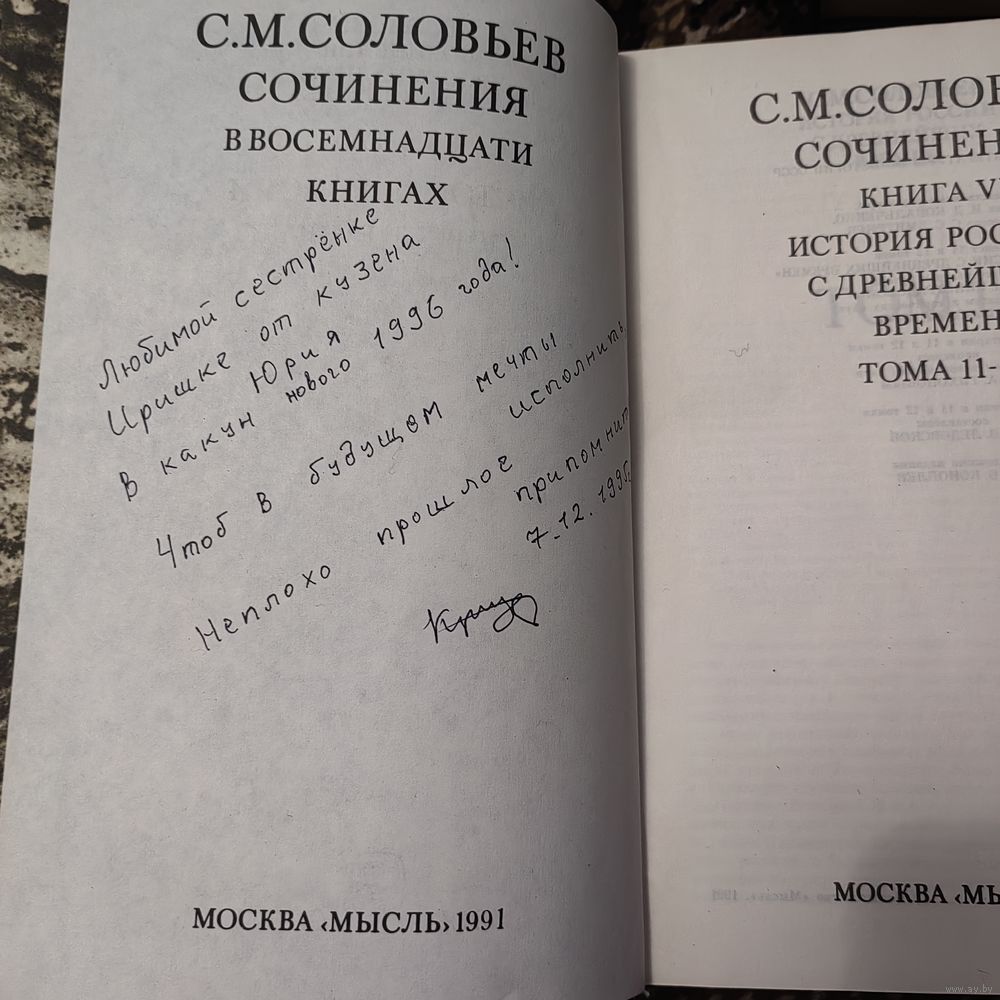 С.М.СОЛОВЬЕВ
СОЧИНЕНИЯ
В ВОСЕМНАДЦАТИ
КНИГАХ
Любимой сестрёнке
Иришке от кузена
Юрия
в какун нового 1996 года!
Чтоб в будущем мечты исполнить,
Неплохо прошлое припомнить
7.12.1995
МОСКВА «МЫСЛЬ» 1991
С.М.СОЛОВ
СОЧИНЕН
КНИГА V
ИСТОРИЯ РОС
С ДРЕВНЕЙШ
ВРЕМЕН
ТОМА 11-
МОСКВА «МЫ
www.ay.by